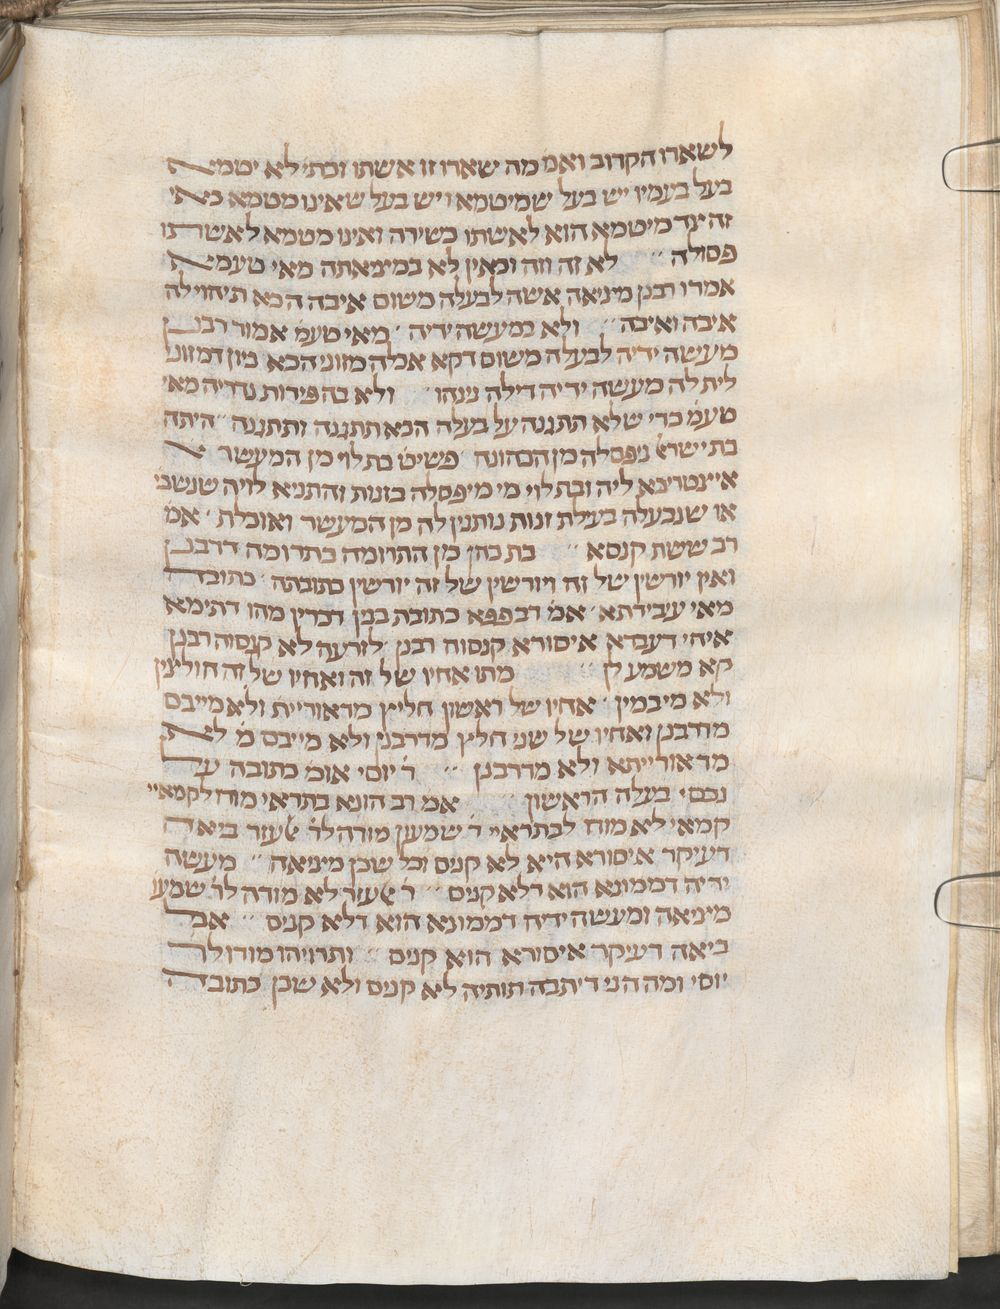 לשארו הקרוב ואמ' מה שארו זו אשתו וכתי' לא יטמא
בעל בעמיו יש בעל שמיטמא ויש בעל שאינו מטמא כאי
זה יצד מיטמא הוא לאשתו כשירה ואינו מטמא לאשתו
פסולה ״ לא זה וזה זכאין לא במיציאתה מאי טעמא
אמרו רבנן מיציאה אשה לבעלה משום איבה הכא תיהוי לה
איבה ואיבה ״ ולא במעשה ידיה ׳ מאי טעמ' אמור רבנן
מעשה ידיה לבעלה משום דקא אכלה מזוני הכא כיון דמזוני
לית לה מעשה ידיה דילה נינהו ״ ולא בהפירות נדריה מאי
טעמ' כדי שלא תתגנה על בעלה הכא תתגנה ותתגנה ״ היתה
בת ישר' ניפסלה מן הכהונה פשיט' בת לוי מן המעשר א
איצטריכא ליה ובת לוי מי מיפסלה בזנות והתניא לויה שנשבי
או שנבעלה בעילת זנות נותנין לה מן המעשר ואוכלת ׳ אמ'
רב ששת קנסא ״ בת כהן מן התרומה בתרומה דרבנן
ואין יורשין של זה ויורשין של זה יורשין כתובתה ׳ כתובה
מאי עבידתא ׳ אמ' רב פפא כתובת בנין דכרין מהו דתימא
איהי דעבדא איסורא קנסוה רבנן לזרעה לא קנסוה רבנן
קא משמע לן ״ מתו אחיו של זה ואחיו של זה חולצין
ולא מיבמין ׳ אחיו של ראשון חליץ מדאוריית' ולא מייבם
מדרבנן ואחיו של שני חליץ מדרבנן ולא מייבם מ' לא
מדאורייתא ולא מדרבנן ״ ר' יוסי אומ' כתובה על
נכסי בעלה הראשון ״ אמ' רב הונא בתראי מודו לקמאיי
קמאי לא מודו לבתראיי ר' שמעון מודה לר' אלעזר ביאה
דעיקר איסורא הייא לא קניס וכל שכן מיציאה ״ מעשה
ידיה דממונא הוא דלא קניס ״ ר' אלעזר לא מודה לר' שמעו
מיציאה ומעשה ידיה דממונא הוא דלא קניס ״ אבל
ביאה דעיקר איסורא הוא קניס ״ ותרויהו מודו לר'
יוסי ומה הני דיתבה תותיה לא קניס ולא שכן כתובה